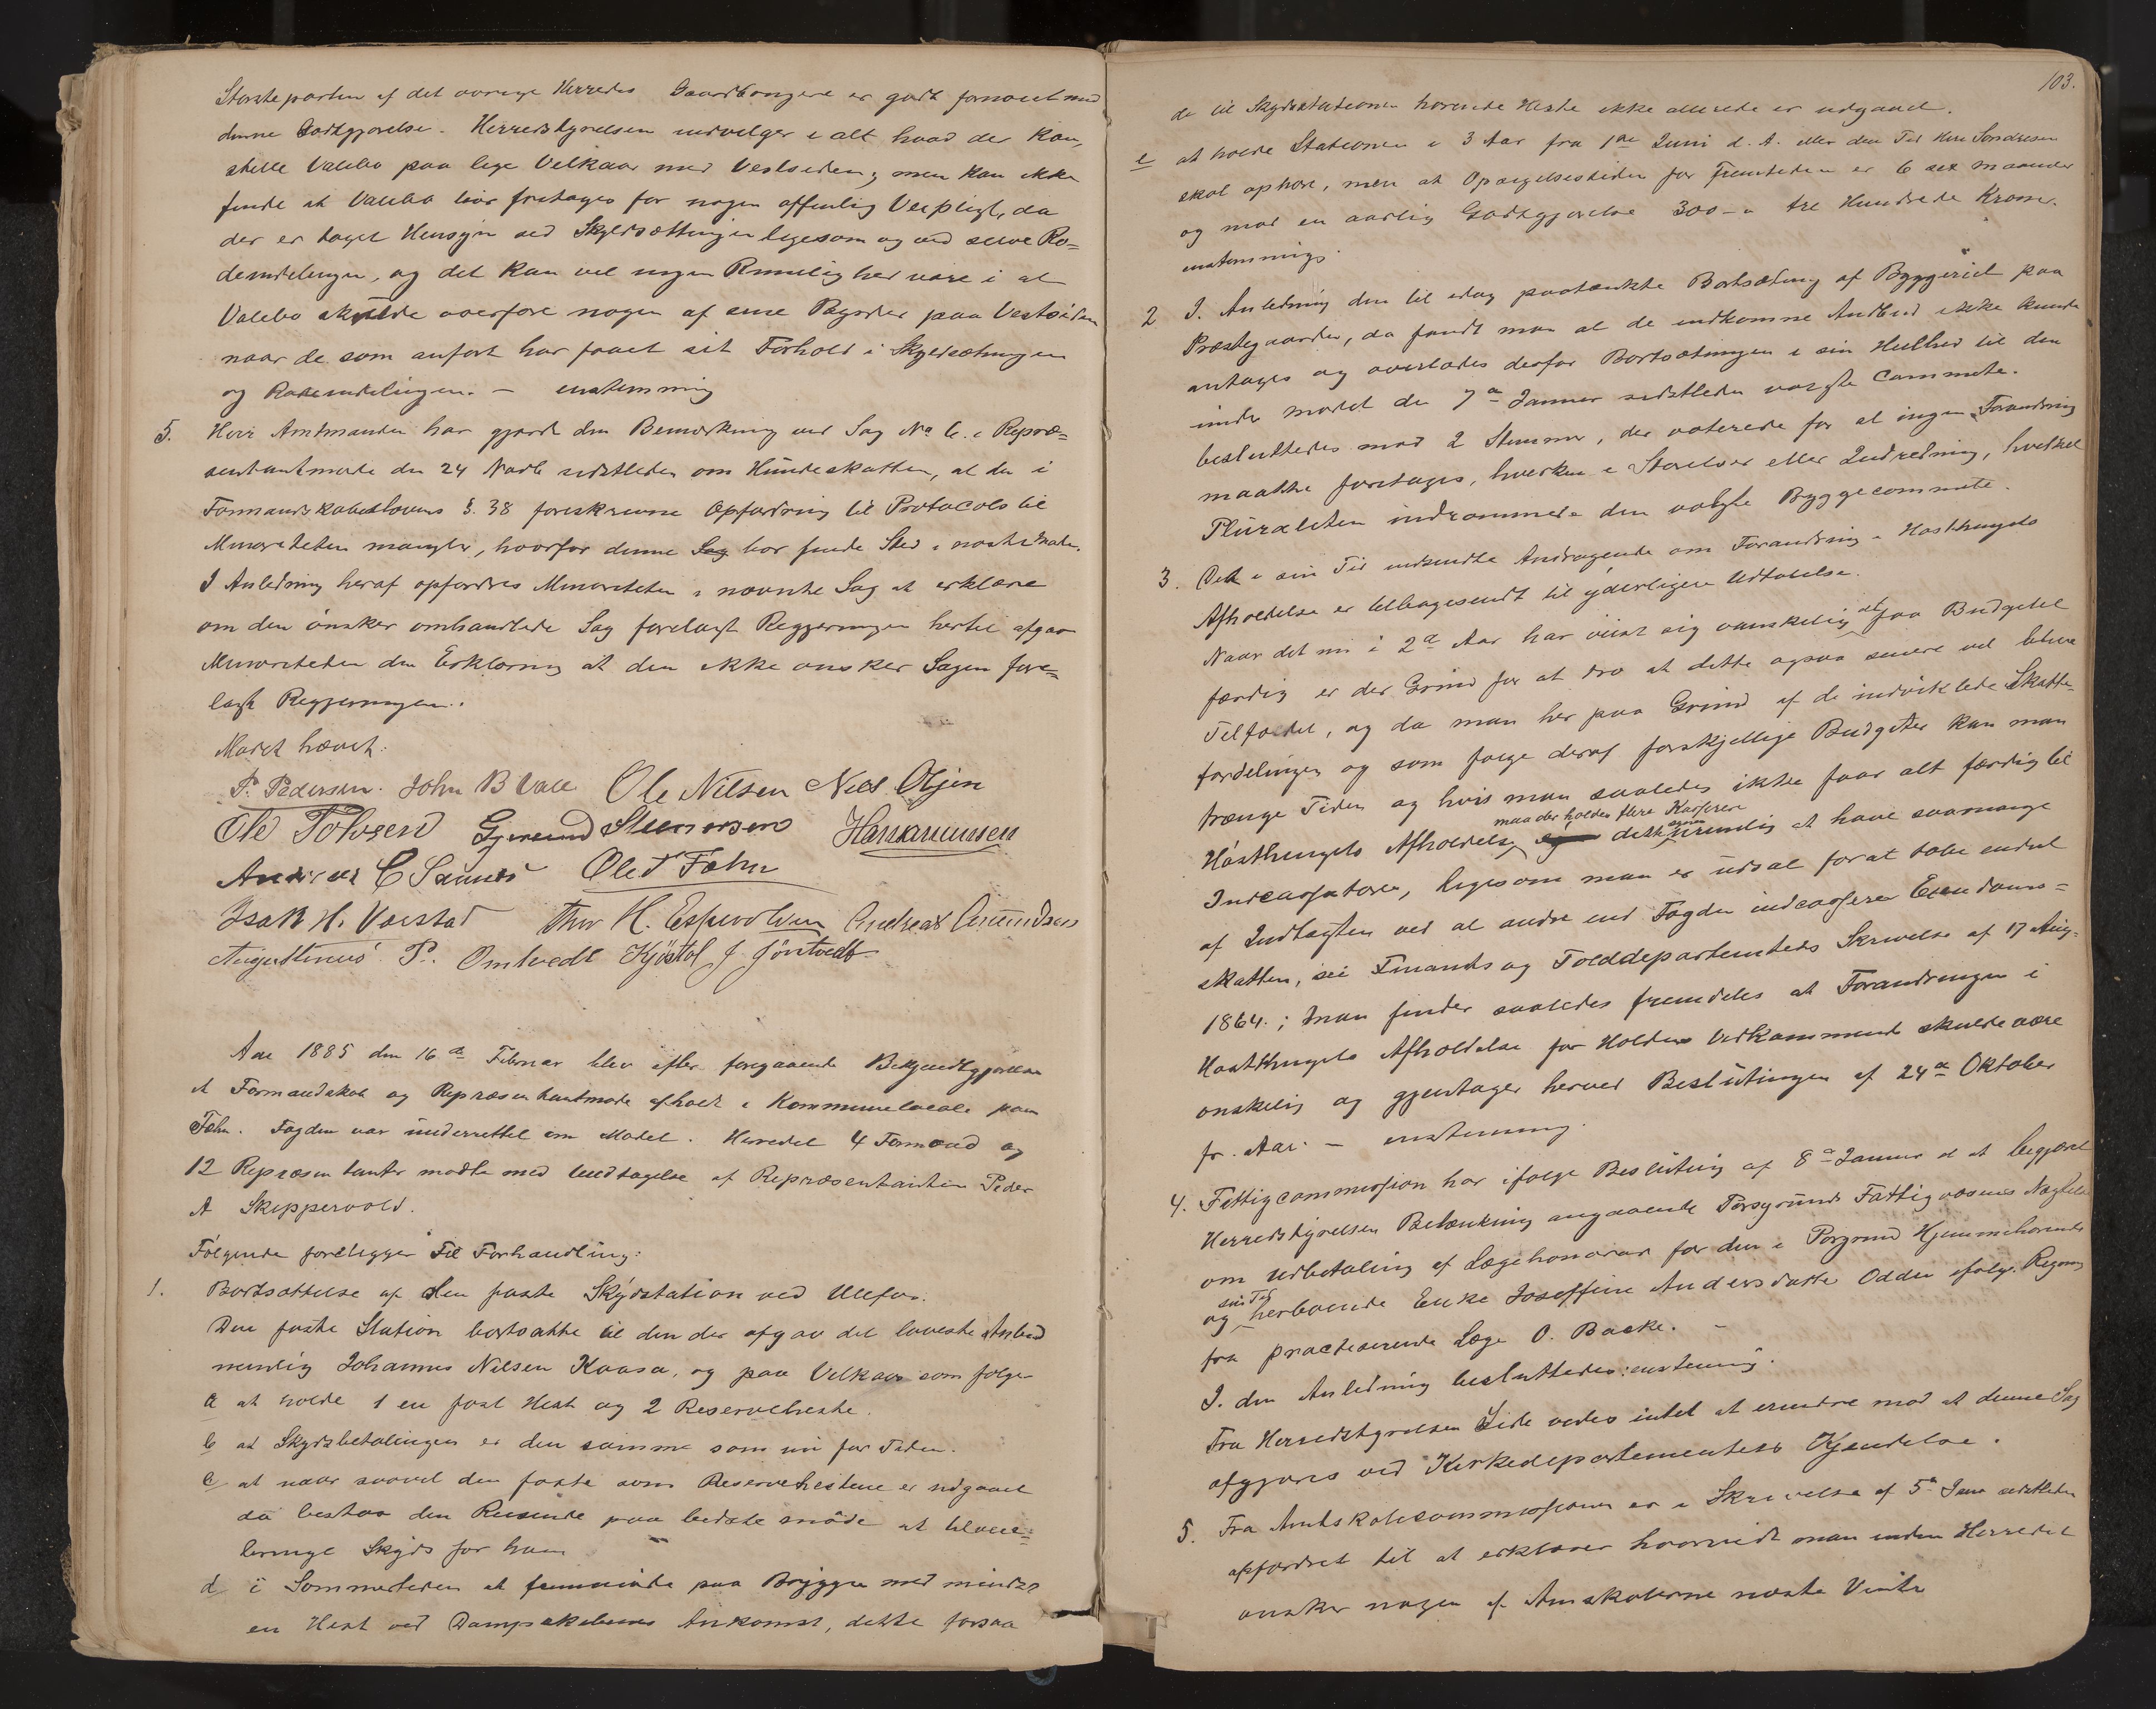 Største parten af det øvrige Herredes Gaardbrugere er godt fornøiet med
denne Godtgjørelse. Herredstyrelsen indvilger i alt hvad der kan
stille Valebø paa lige Velkaar med Vestsiden, men kan ikke
finde at Valebø bør fritages for nogen offentlig Veipligt, da
der er taget Hensyn ved Skyldsætningen ligesom og ved selve Ro=
deindelingen, og det kan vel ingen Rimelighed være i at
Valebø skulde overføre nogen af sine Byrder paa Vestsiden
naar de som anført har faaet sit Forhold i Skyldsætningen
og Rodeindelingen. — enstemmig
5. Herr Amtmanden har gjort den Bemærkning ved Sag No 6. i Repræ=
sentantmøde den 24 Novb sidstleden om Hundeskatten, at den i
Formandskabslovens §. 38 foreskrevne Opfordring til Protocols til
Minoriteten mangler, hvorfor denne Sag bør finde Sted i næste Møde.
I Anledning heraf opfordres Minoriteten i nævnte Sag at erklære
om den ønsker omhandlede Sag forelagt Regjeringen hertil afgav
Minoriteten den Erklæring at den ikke ønsker Sagen fore=
lagt Regjeringen.
Mødet hævet.
P. Pedersen. John B Vale Ole Nilsen Niels Olsen
Ole Tolvsen Gjermund Steenersen H Rasmussen
Andreas C Sannes Ole T Fæhn
Isak H. Værstad Thor H. Espevolden Andreas Amundsen
Augustinus P. Omtvedt Kjøstol J. Jøntvedt
Aar 1885 den 16de Februar blev efter foregaaende Bekjendtgjørelse
et Formandskab og Repræsentantmøde afholdt i Kommunelocale paa
Fæhn. Fogden var underrettet om Mødet. Herredet 4 Formænd og
12 Repræsentanter mødte med Undtagelse af Repræsentanten Peder
A Skippervold.
Følgende foreligger Til Forhandling:
1. Bortsættelse af den faste Skydstation ved Ulefos.
Den faste Station bortsatte til den der afgav det laveste Anbud
nemlig Johannes Nilsen Kaasa, og paa Vilkaar som følger
a at holde 1 en fast Hest og 2 Reserveheste.
b at Skydsbetalingen er den samme som nu for Tiden.
c at naar saavel den faste som Reservehestene er udgaaet
da bestaa den Reisende paa bedste maade at tilveie=
bringe Skyds for ham
d i Sommertiden at fremmøde paa Bryggen med mindst
en Hest ved Dampskibenes Ankomst, dette forsaa
103.
de til Skydsstationen hørende Heste ikke allerede er udgaaet.
e at holde Stationen i 3 Aar fra 1ste Juni d. A. eller den Tid Herr Søndresen
skal ophøre, men at Opsigelsestiden for Fremtiden er 6 sex maaneder
og mod en aarlig Godtgjørelse 300 – a tre Hundrede Kroner.
enstemmig.
2 I. Anledning den til idag paatænkte Bortsætning af Byggeriet paa
Præstegaarden, da fandt man at de indkomne Anbud ikke kunde
antages og overlades derfor Bortsætningen i sin Helhed til den
under mødet den 7de Januar sidstleden valgte Commite.
besluttedes mod 2 Stemmer, der voterede for at ingen Forandring
maatte foretages, hverken i Størelser eller Indredning, hvilket
Pluraliteten indrømmede den valgte Byggecommite.
3. Det i sin Tid indsendte Andragende om Forandring i Høstthingets
Afholdelse er tilbagesendt til yderligere Udtalelse.
Naar det nu i 2de Aar har viist sig vanskelig at faa Budgetet
færdig er der Grund for at tro at dette ogsaa senere vil blive
Tilfældet, og da man her paa Grund af de indviklede Skatte=
fordelinger og som følge deraf forskjellige Budgeter kan man
trænge Tiden og hvis man saaledes ikke faar alt færdig til
maa der holdes flere Kasserere
Høstthingets Afholdelse, dette synes urimelig at have saamange
Incassatører, ligesom man er udsat for at tabe endel
af Indtægten ved at andre end Fogden indcasserer Eiendoms=
skatten, sei Finants og Tolddepartementets Skrivelse af 17 Aug.
1864. ; man finder saaledes fremdeles at Forandringen i
Høstthingets Afholdelse for Holdens Vedkommende skulde være
ønskelig og gjentager herved Beslutningen af 24de Oktober
fr. Aar. — enstemmig.
4. Fattigcommission har ifølge Beslutning af 8de Januar d A begjæret
Herredstyrelsen Betænkning angaaende Porsgrunds Fattigvæsens Nægtelse
om Udbetaling af Lægehonorar for den i Porsgrund Hjemmehørende
og sin Tid herboende Enke Joseffine Andersdatter Odden ifølge Regning
fra practiserende Læge O. Backe. –
I. den Anledning besluttedes: enstemmig.
Fra Herredstyrelsen Side vedes intet at erindre mod at denne Sag
afgjøres ved Kirkedepartementets Kjendelse.
5. Fra Amtskolecommissionen er i Skrivelse af 5te Janr sidstleden
opfordret til at erklære hvorvidt man inden Herredet
ønsker nogen af Amtskolerne næste Vinter